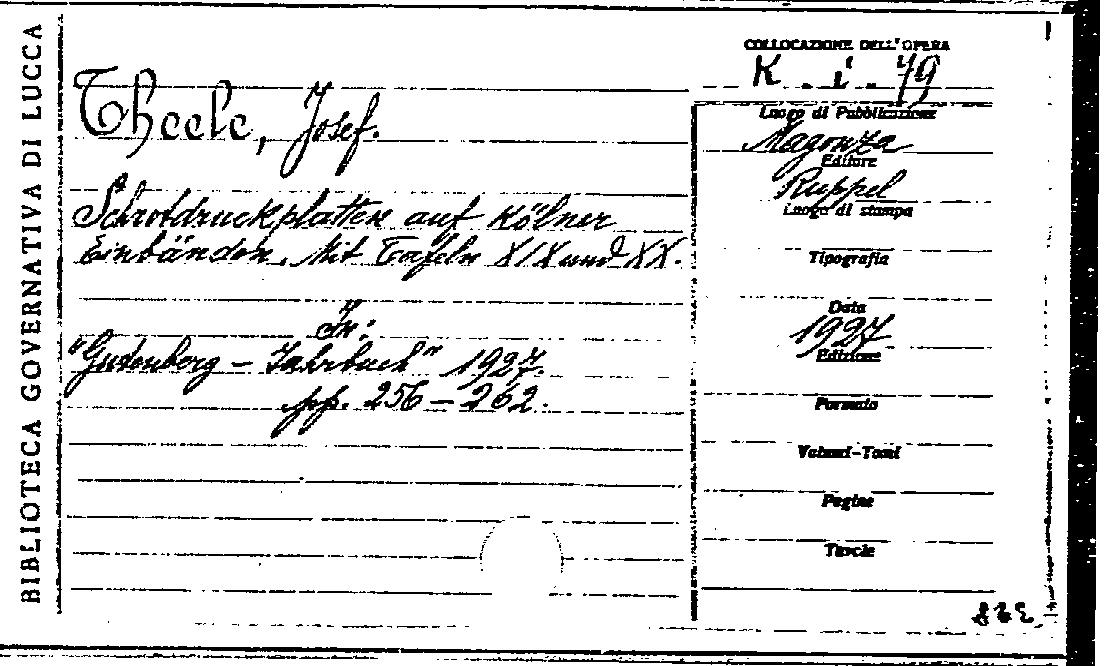 BIBLIOTECA GOVERNATIVA DI LUCCA
Theele, Josef.
Schrotdruckplatten auf Kölner
Einbänden. Mit Tafeln XIX und XX.
In:
"Gutenberg - Jahrbuch" 1927.
pp. 256 - 262.
COLLOCAZIONE DELL'OPERA
K. i. 49
Luogo di Pubblicazione
Magonza
Editore
Ruppel
Luogo di stampa
Tipografia
Data
1927
Edizione
Formato
Volumi-Tomi
Pagine
Tavole